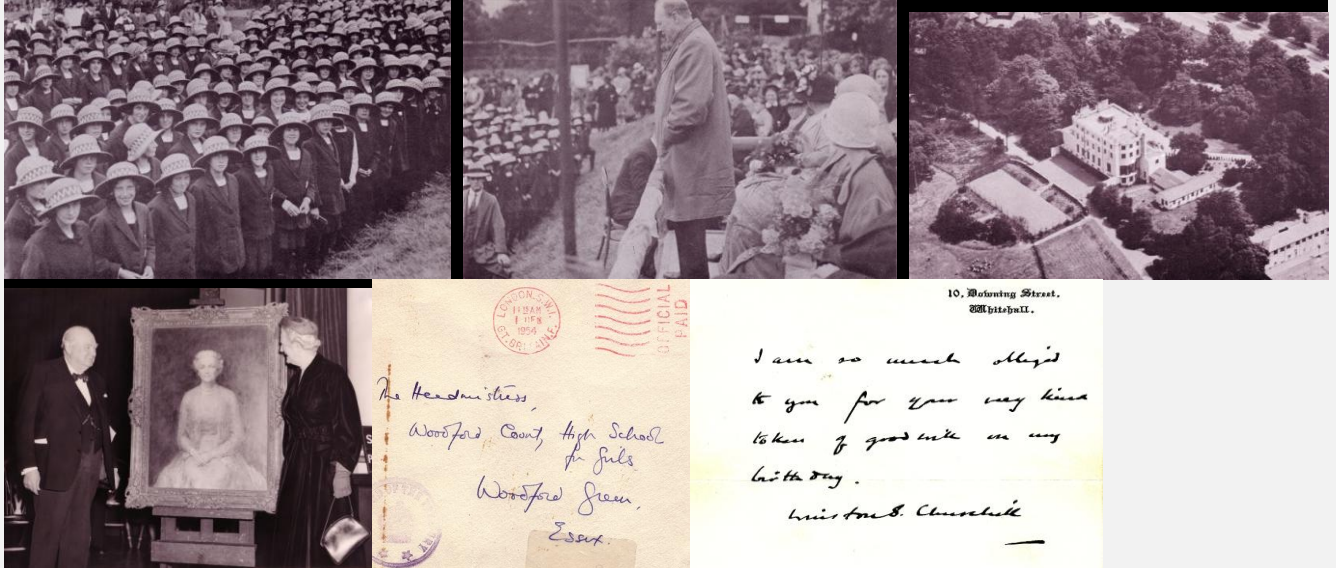 LONDON. S.W.1.
1954
GT. BRITAIN.
OFFICIAL
PAID
The Headmistress,
Woodford County High School
for Girls
Woodford Green,
Essex.
10, Downing Street,
Whitehall.
I am so much obliged
to you for your very kind
token of goodwill on my
birthday.
Winston S. Churchill